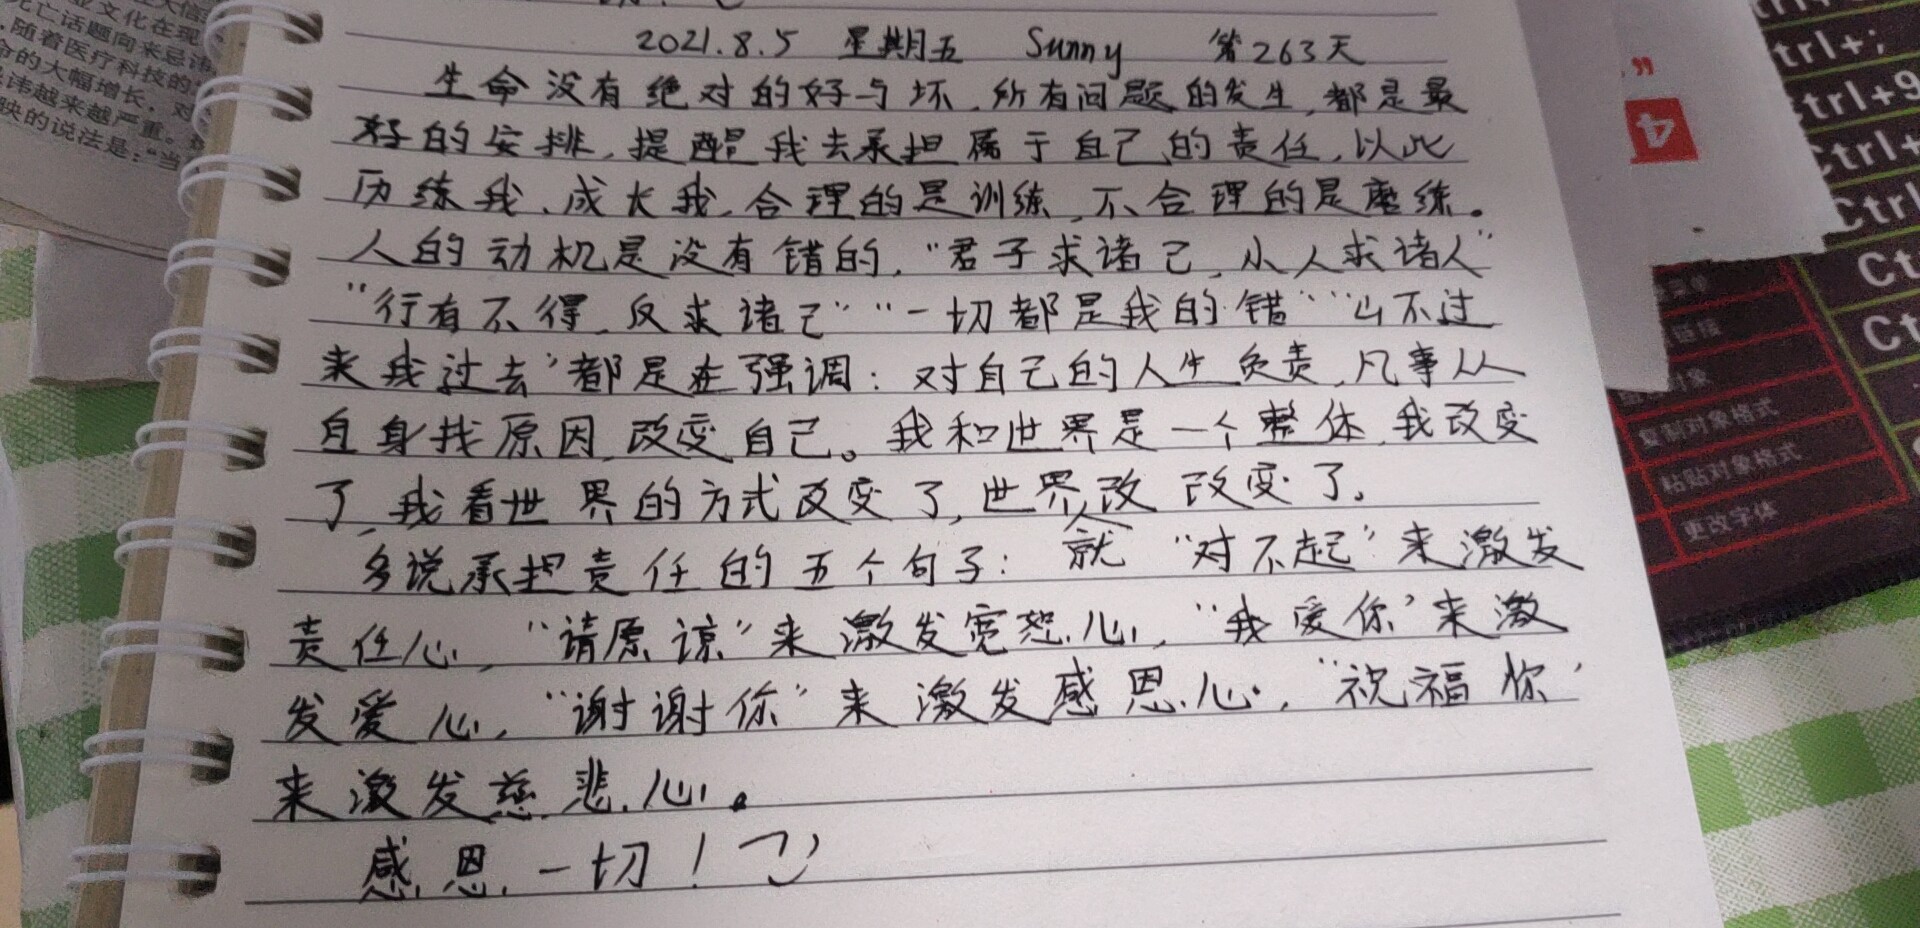 2021.8.5 星期五 Sunny 第263天
生命没有绝对的好与坏,所有问题的发生,都是最
好的安排,提醒我去承担属于自己的责任,以此
历练我、成长我,合理的是训练,不合理的是磨练。
人的动机是没有错的,“君子求诸己,小人求诸人”
“行有不得,反求诸己”“一切都是我的错”“山不过
来我过去”都是在强调:对自己的人生负责,凡事从
自身找原因,改变自己。我和世界是一个整体,我改变
了,我看世界的方式改变了,世界改 改变了。
多说承担责任的五个句子:就“对不起”来激发
责任心,“请原谅”来激发宽恕心,“我爱你”来激
发爱心,“谢谢你”来激发感恩心,“祝福你”
来激发慈悲心。
感恩一切!
文化在现
死亡话题向来忌讳
随着医疗科技的
命的大幅增长,对
讳越来越严重。
映的说法是:“当
4
trl+;
Ctrl+9
Ctrl+
Ctrl
复制对象格式
粘贴对象格式
更改字体